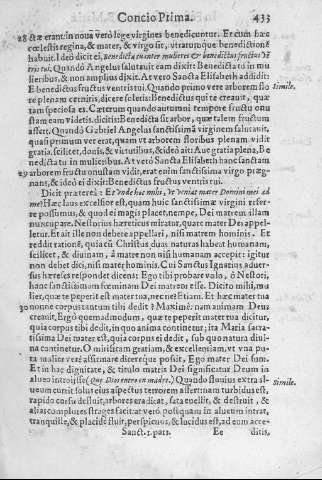 Concio Prima. 433
28 ctæ erant: in noua verò lege virgines benedicuntur. Et cum hæc
cœlestis regina, & mater, & virgo sit, vtramque benedictionē
habuit. Ideò dicit ei, Benedicta inter mulieres & benedictus fructus vē
tris tui. Quandò Angelus salutauit eam dixit: Benedicta tu in mu
lieribus, & non amplius dixit. At verò Sancta Elisabeth addidit:
Et benedictus fructus ventris tui. Quando primo vere arborem flo Simile.
re plenam cernitis, dicere soletis: Benedictus qui te creauit, quæ
tam speciosa es. Cæterum quando autumni tempore fructu onu
stam eam videtis. dicitis: Benedicta sic arbor, quæ talem fructum
affert. Quandò Gabriel Angelus sanctissimā virginem salutauit,
quasi primum ver erat, quam vt arborem floribus plenam vidit
gratia, scilicet, donis, & virtutibus, & ideò ait: Aue gratia plena, Be
nedicta tu in mulieribus. At verò Sancta Elisabeth hanc sanctam
29 arborem fructu onustam vidit, erat enim sanctissima virgo præg-
nans, & ideò ei dixit: Benedictus fructus ventris tui.
Dicit præterea: Et vnde hoc mihi, vt veniat mater Domini mei ad
me? Hæc laus excelsior est, quam huic sanctissimæ virgini refer-
re possumus, & quod ei magis placet, nempe, Dei matrem illam
nuncupare. Nestorius hæreticus miratur, quare mater Dei appel-
letur. Et ait ille non debere appellari, nisi matrem hominis. Et
reddit rationē, quia cū Christus duas naturas habeat humanam,
scilicet, & diuinam, à matre non nisi humanam accepit: igitur
non debet dici, nisi mater hominis. Cui Sanctus Ignatius aduer-
sus hæreses respondet dicens: Ego tibi probare volo, ò Nestori,
hanc sanctissimam fœminam Dei matrem esse. Dicito mihi, mu
lier, quæ te peperit est mater tua, nec ne? Etiam. Et hæc mater tua
30 nonne corpus tantum tibi dedit? Maximè: nam animam Deus
creauit. Ergò quemadmodum, quæ te peperit mater tua dicitur,
quia corpus tibi dedit, in quo anima continetur; ita Maria sacra-
tissima Dei mater est, quia corpus ei dedit, sub quo natura diui-
na continetur. O miritficam gratiam, & excellentiam, vt vna pu-
ra mulier verè affirmare dicereque possit, Ego mater Dei sum.
Et in hac dignitate, & titulo matris Dei significatur Deum in
alueo introisse (Que Dios entro en madre.) Quandò fluuius extra al- Simile.
ueum currit solus eius aspectus terrorem affert: nam turbidus est,
rapido cursu destuit, arbores eradicat, sata euellit, & destruit, &
alias complures strages facit: at verò postquam in alueum intrat,
tranquillè, & placidè fluit, perspicuus, & lucidus est, ad eum acce-
Sanct. 1. pars. Ee ditis,